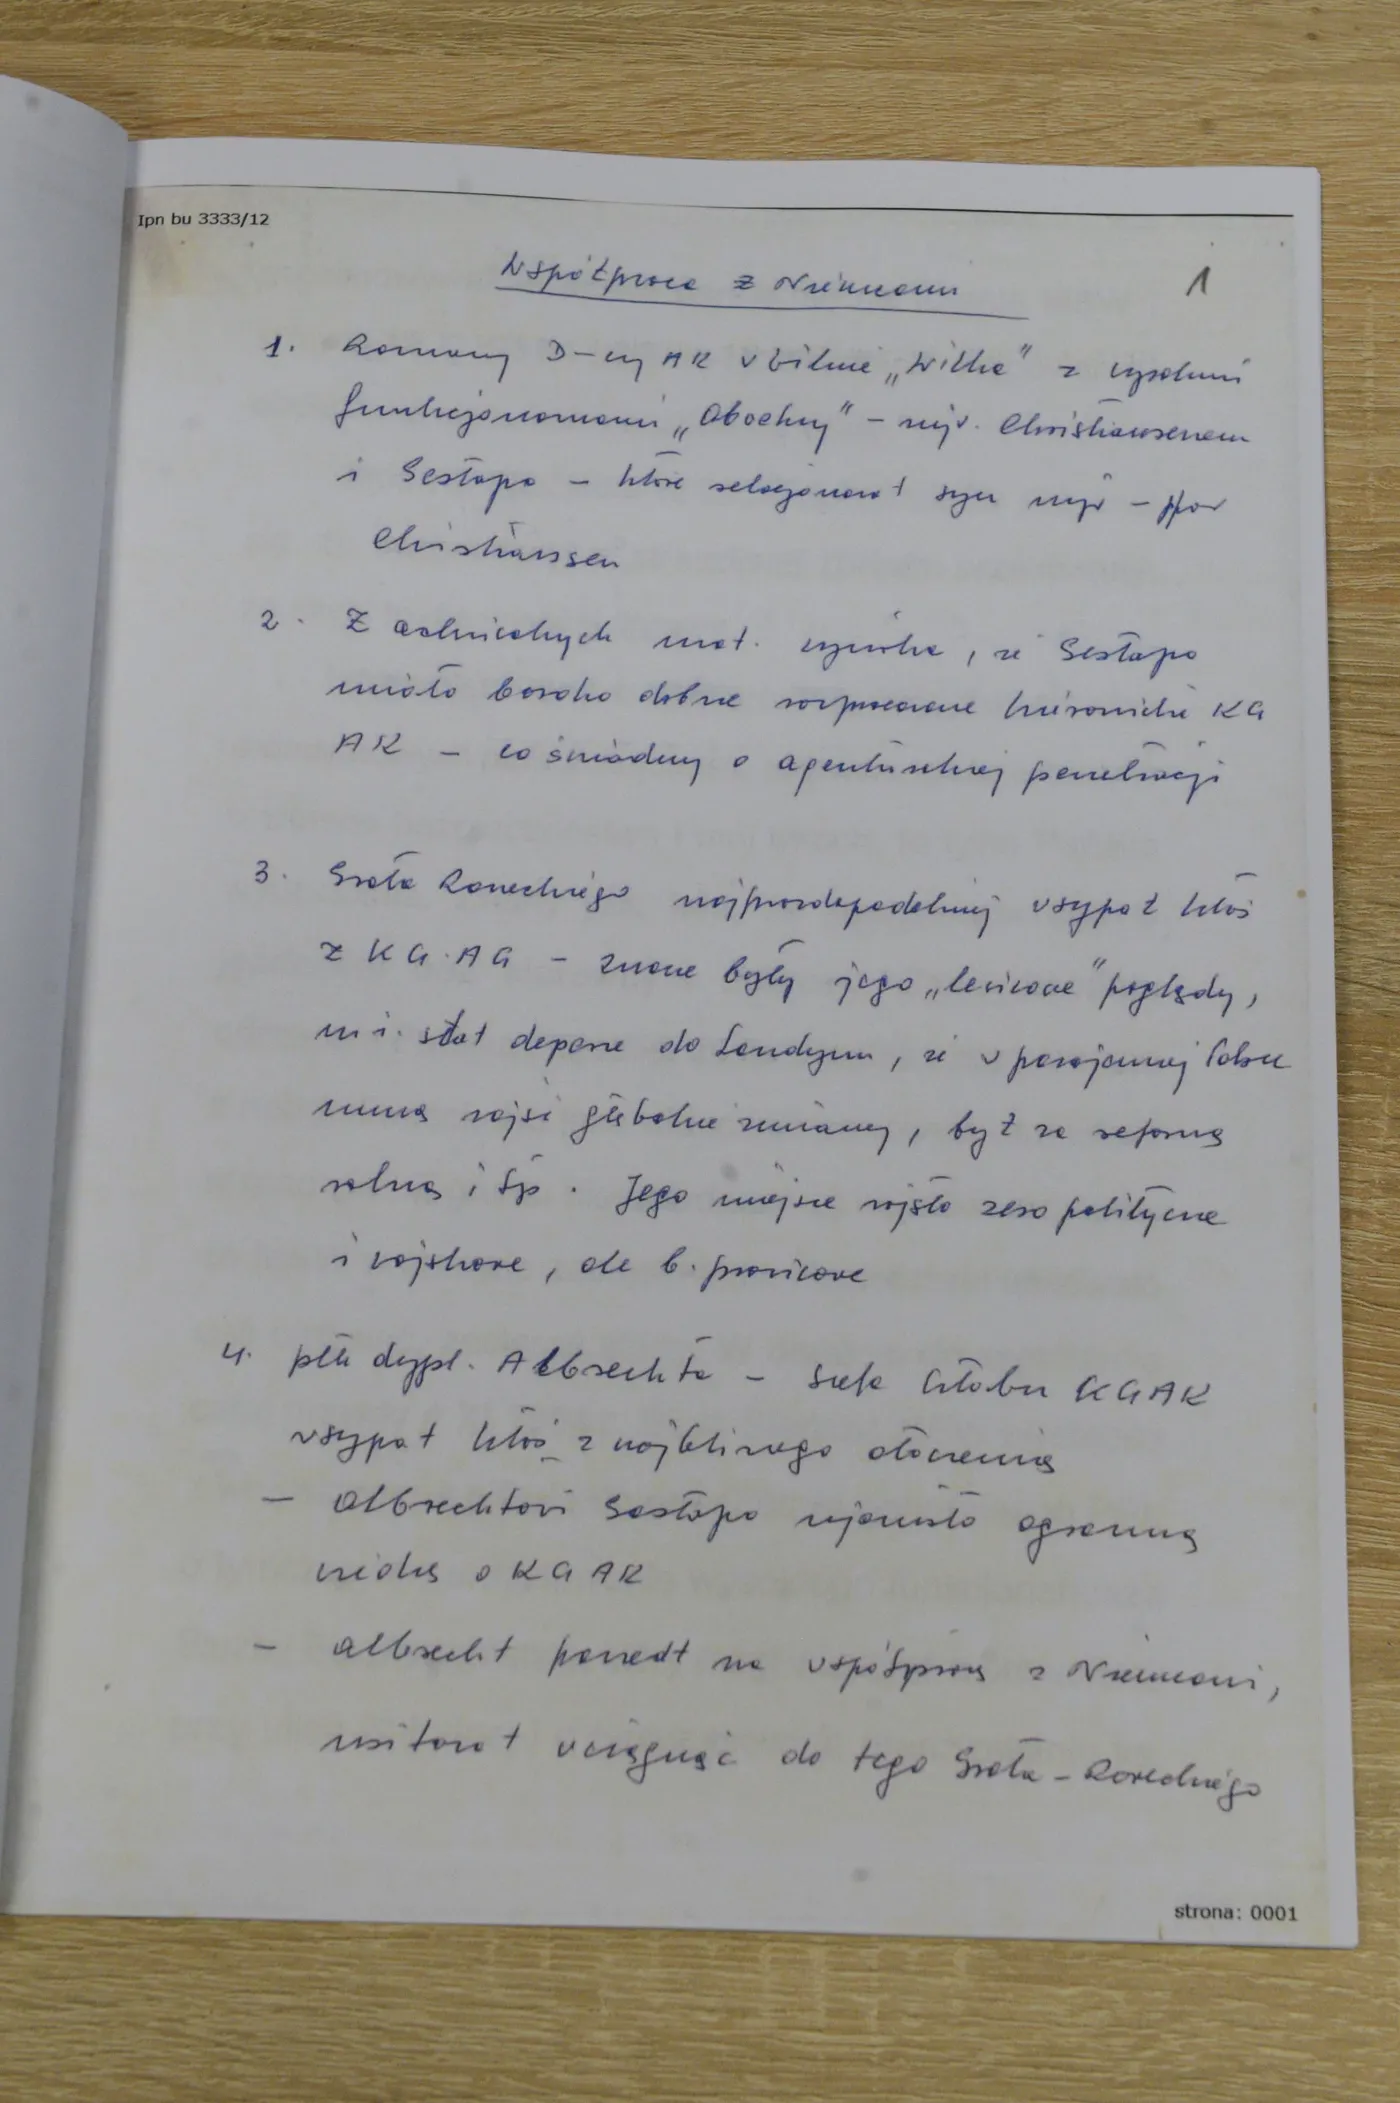 Ipn bu 3333/12
1
Współpraca z Niemcami
1. Rozmowy D-cy AK w Wilnie „Wilka" z wysokimi
funkcjonariuszami „Abwehry" – mjr. Christiansenem
i Gestapo – które relacjonował syn mjr – ppor
Christianssen
2. Z archiwalnych mat. wynika, że Gestapo
miało bardzo dobrze rozpracowane kierownictwo KG
AK – co świadczy o agenturalnej penetracji
3. Grota Roweckiego najprawdopodobniej wsypał ktoś
z KG.AG – znane były jego „lewicowe" poglądy,
m i. słał depesze do Londynu, że w powojennej Polsce
muszą zajść głębokie zmiany, był za reformą
rolną i tp. Jego miejsce zajęło zero polityczne
i wojskowe, ale b. prawicowe
4. płk dypl. Albrechta – szefa sztabu KGAK
wsypał ktoś z najbliższego otoczenia
– Albrechtowi Gestapo ujawniło ogromną
wiedzę o KG AK
– Albrecht poszedł na współpracę z Niemcami,
usiłował wciągnąć do tego Grota-Roweckiego
strona: 0001